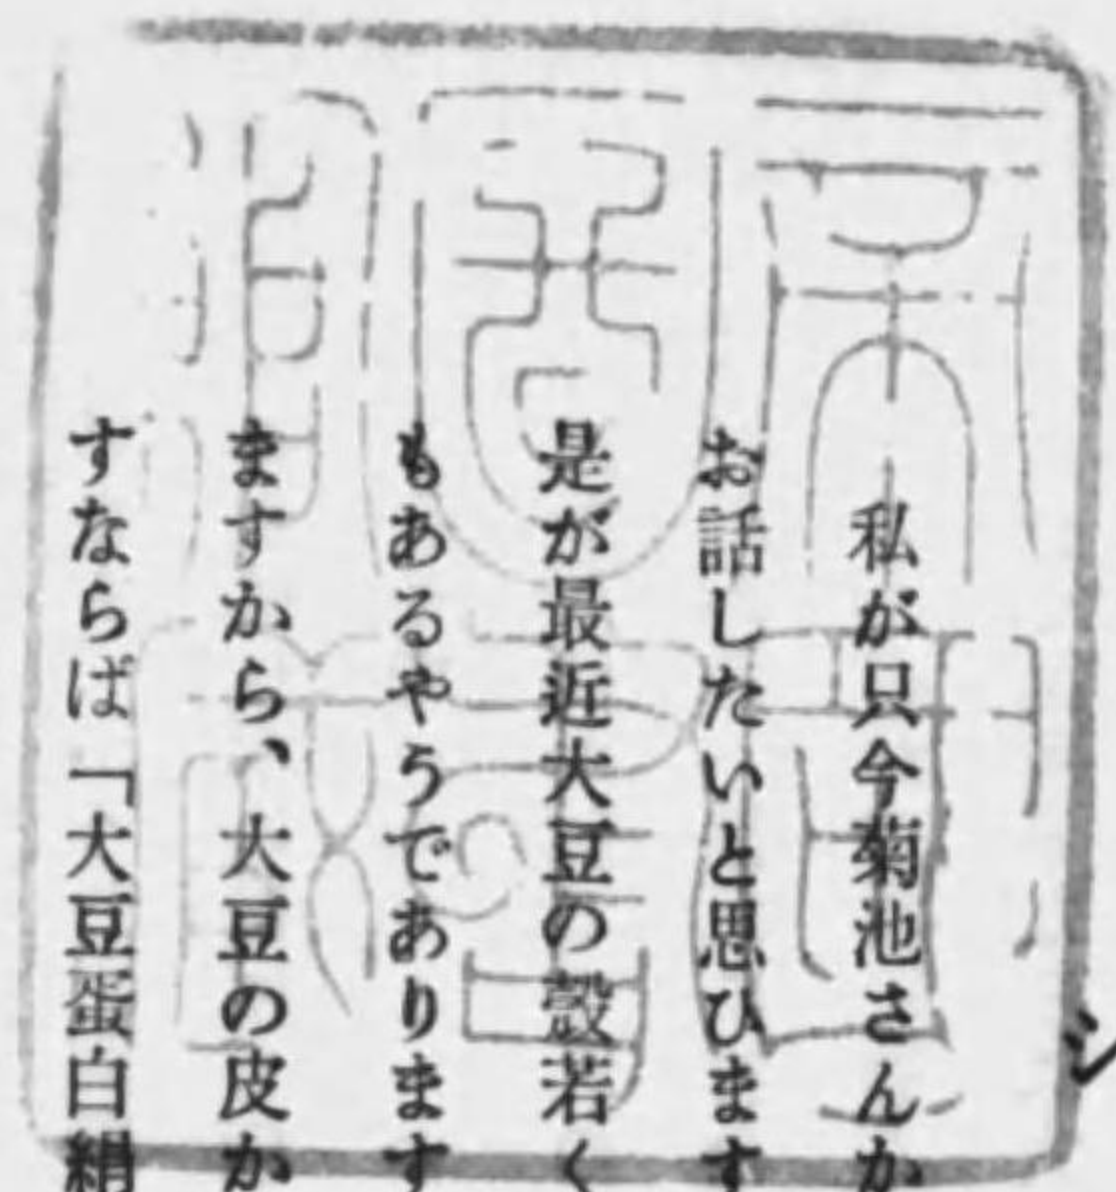 私が只今菊池さんか
お話したいと思ひます
是が最近大豆の殻若く
もあるやうであります
ますから、大豆の皮か
すならば「大豆蛋白絹